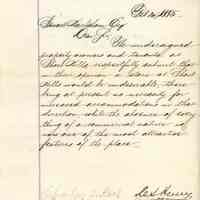 1885
Stewart Hartshorn Esq
Dear Sir
The undersigned
property owners and tenants at
Short Hills respectfully submit that
in their opinion a store at Short
Hills would be undesirable, there
being at present no necessity for
increased accommodations in that
direction while the absence of every
thing of a commercial nature is
now one of the most attractive
features of the place